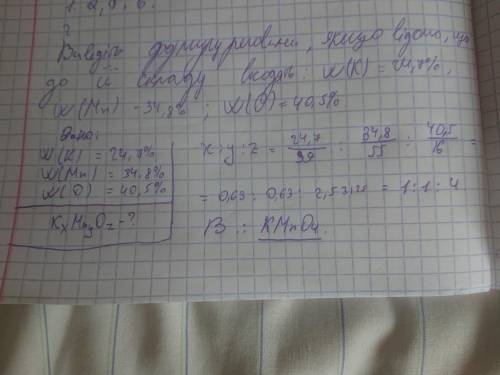 1. 2, 0, 6.
?
Виведіть формулу речовини, якщо відомо, що
до її складу входять: W(K) = 24,7%,
W(Mn) - 34,8% ; W(O) = 40,5%
Дано:
W(K) = 24,7%
W(Mn) = 34,8%
W(O) = 40,5%
KxMnyOz - ?
x : y : z = 24,7/39 : 34,8/55 : 40,5/16 =
= 0,63 : 0,63 : 2,53125 = 1:1:4
В : KMnO4.